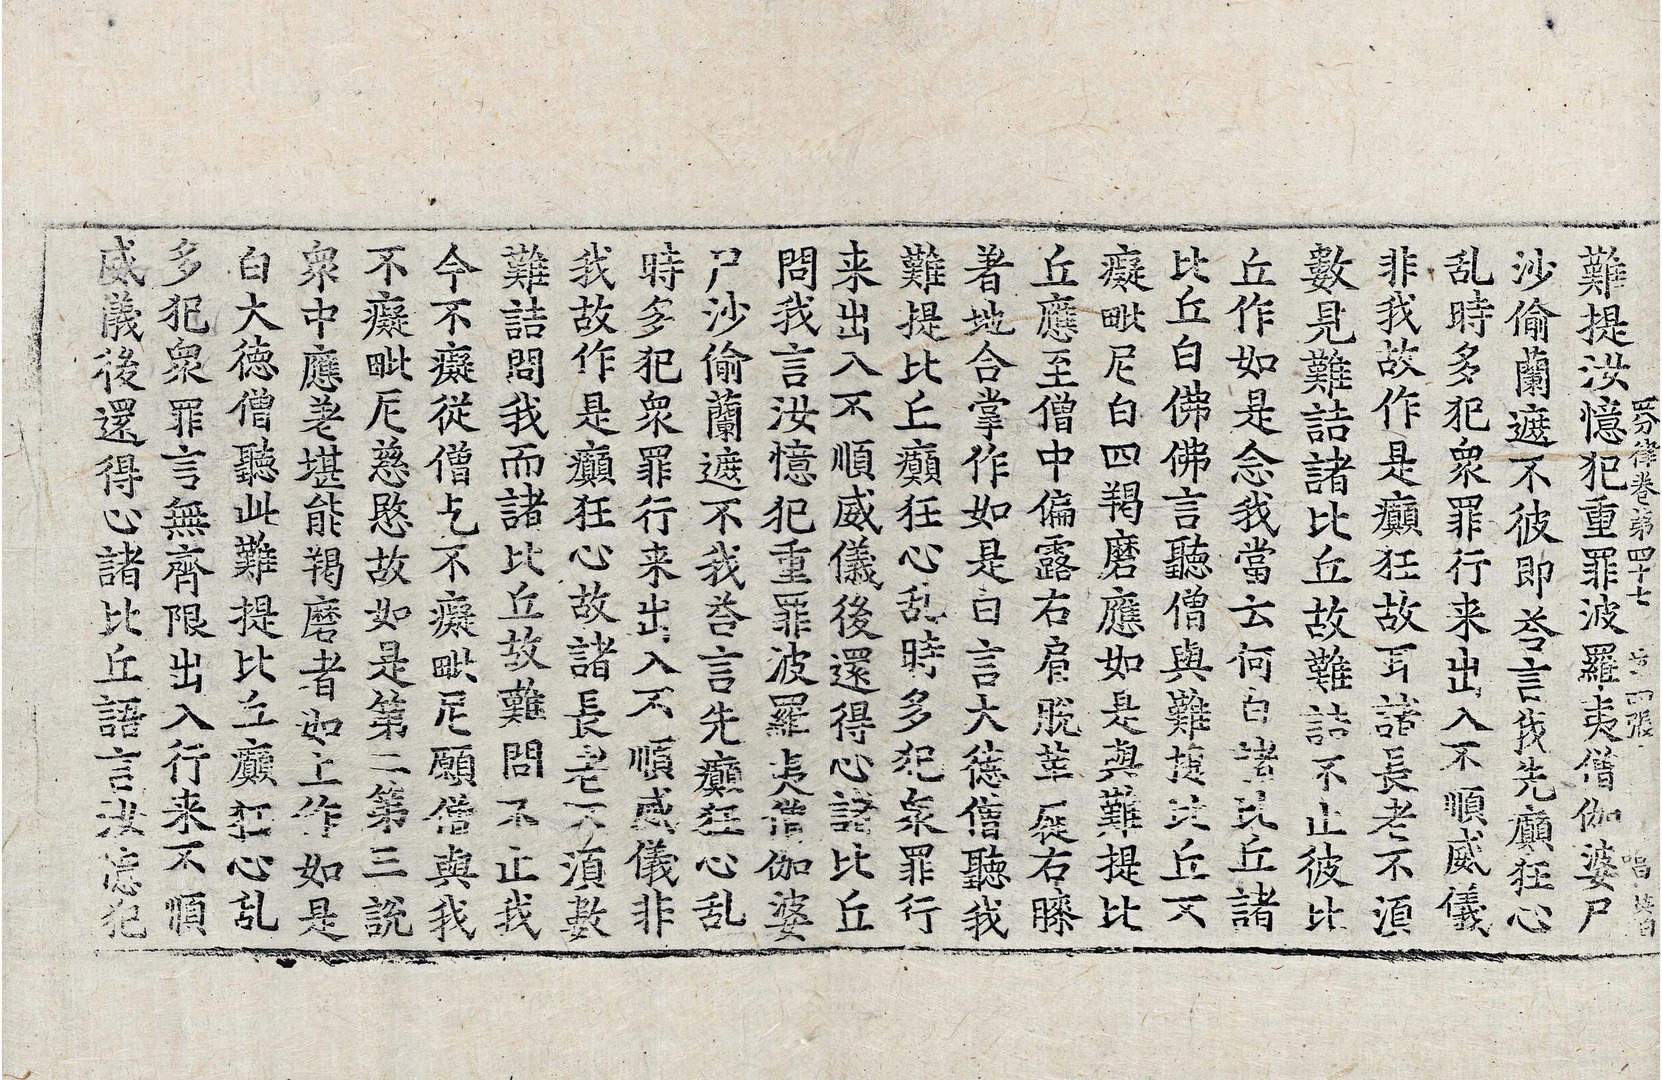 四分律卷第四十七 四張
難提汝憶犯重罪波羅夷僧伽婆尸
沙偷蘭遮不彼即荅言我先癲狂心
乱時多犯衆罪行来出入不順威儀
非我故作是癲狂故耳諸長老不湏
數見難詰諸比丘故難詰不止彼比
丘作如是念我當云何白諸比丘諸
比丘白佛佛言聽僧與難提比丘不
癡毗尼白四羯磨應如是與難提比
丘應至僧中偏露右肩脫革屣右膝
著地合掌作如是白言大德僧聽我
難提比丘癲狂心乱時多犯衆罪行
来出入不順威儀後還得心諸比丘
問我言汝憶犯重罪波羅夷僧伽婆
尸沙偷蘭遮不我荅言先癲狂心乱
時多犯衆罪行来出入不順威儀非
我故作是癲狂心故諸長老不湏數
難詰問我而諸比丘故難問不止我
今不癡從僧乞不癡毗尼願僧與我
不癡毗尼慈愍故如是第二第三說
衆中應差堪能羯磨者如上作如是
白大德僧聽此難提比丘癲狂心乱
多犯衆罪言無齊限出入行来不順
威儀後還得心諸比丘語言汝憶犯